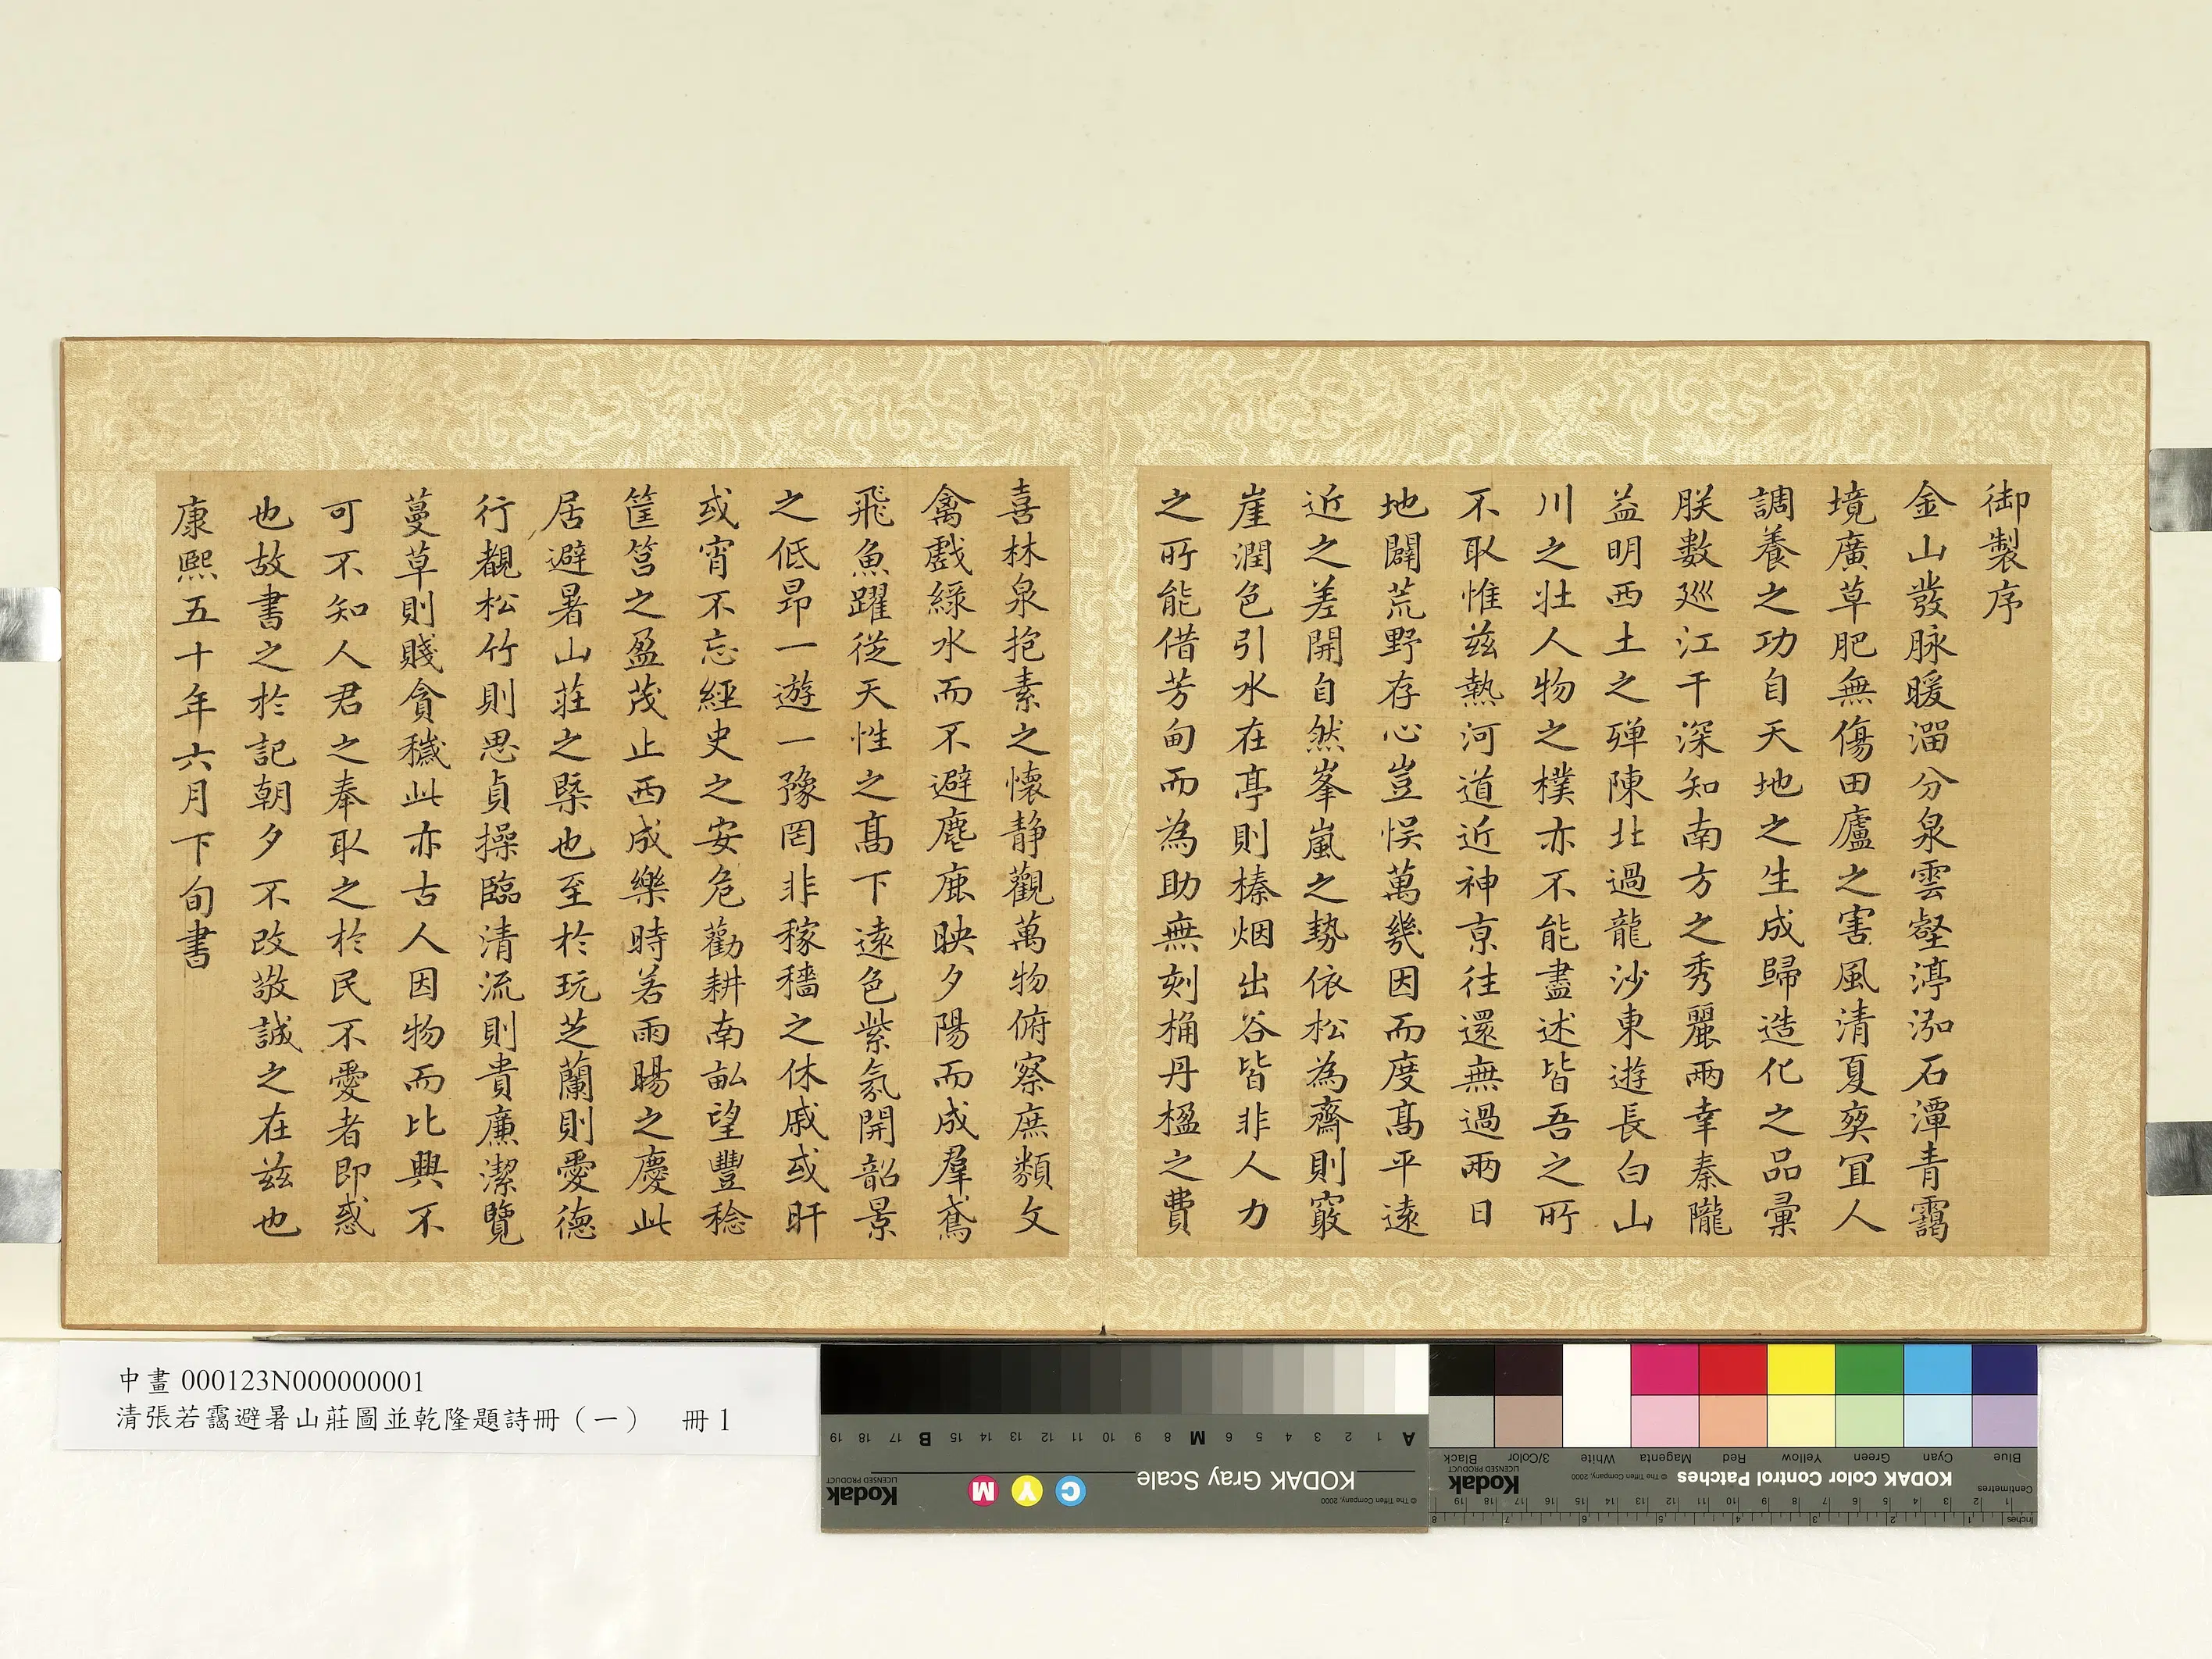 御製序
金山發脉暖溜分泉雲壑渟泓石潭青靄
境廣草肥無傷田廬之害風清夏奕宜人
調養之功自天地之生成歸造化之品彙
朕數廵江干深知南方之秀麗兩幸秦隴
益明西土之殫陳北過龍沙東遊長白山
川之壯人物之樸亦不能盡述皆吾之所
不取惟茲熱河道近神京往還無過兩日
地闢荒野存心豈悮萬幾因而度高平遠
近之差開自然峯嵐之勢依松為齋則竅
崖潤色引水在亭則榛烟出谷皆非人力
之所能借芳甸而為助無刻桷丹楹之費
喜林泉抱素之懷静觀萬物俯察庶類文
禽戲綠水而不避麀鹿映夕陽而成羣鳶
飛魚躍從天性之高下遠色紫氛開韶景
之低昂一遊一豫罔非稼穡之休戚或旰
或宵不忘經史之安危勸耕南畝望豐稔
筐筥之盈茂止西成樂時若雨暘之慶此
居避暑山莊之槩也至於玩芝蘭則愛德
行覩松竹則思貞操臨清流則貴廉潔覽
蔓草則賤貪穢此亦古人因物而比興不
可不知人君之奉取之於民不愛者即惑
也故書之於記朝夕不改敬誠之在茲也
康熙五十年六月下旬書
中畫000123N000000001
清張若靄避暑山莊圖並乾隆題詩冊（一） 冊1
A 1 2 3 4 5 6 M 8 9 10 11 12 13 14 15 B 17 18 19
KODAK Gray Scale
C Y M
Kodak
LICENSED PRODUCT
© The Tiffen Company, 2000
Blue Cyan Green Yellow Red Magenta White 3/Color Black
KODAK Color Control Patches
© The Tiffen Company, 2000
Kodak
LICENSED PRODUCT
Centimetres
1 2 3 4 5 6 7 8 9 10 11 12 13 14 15 16 17 18 19
Inches
1 2 3 4 5 6 7 8